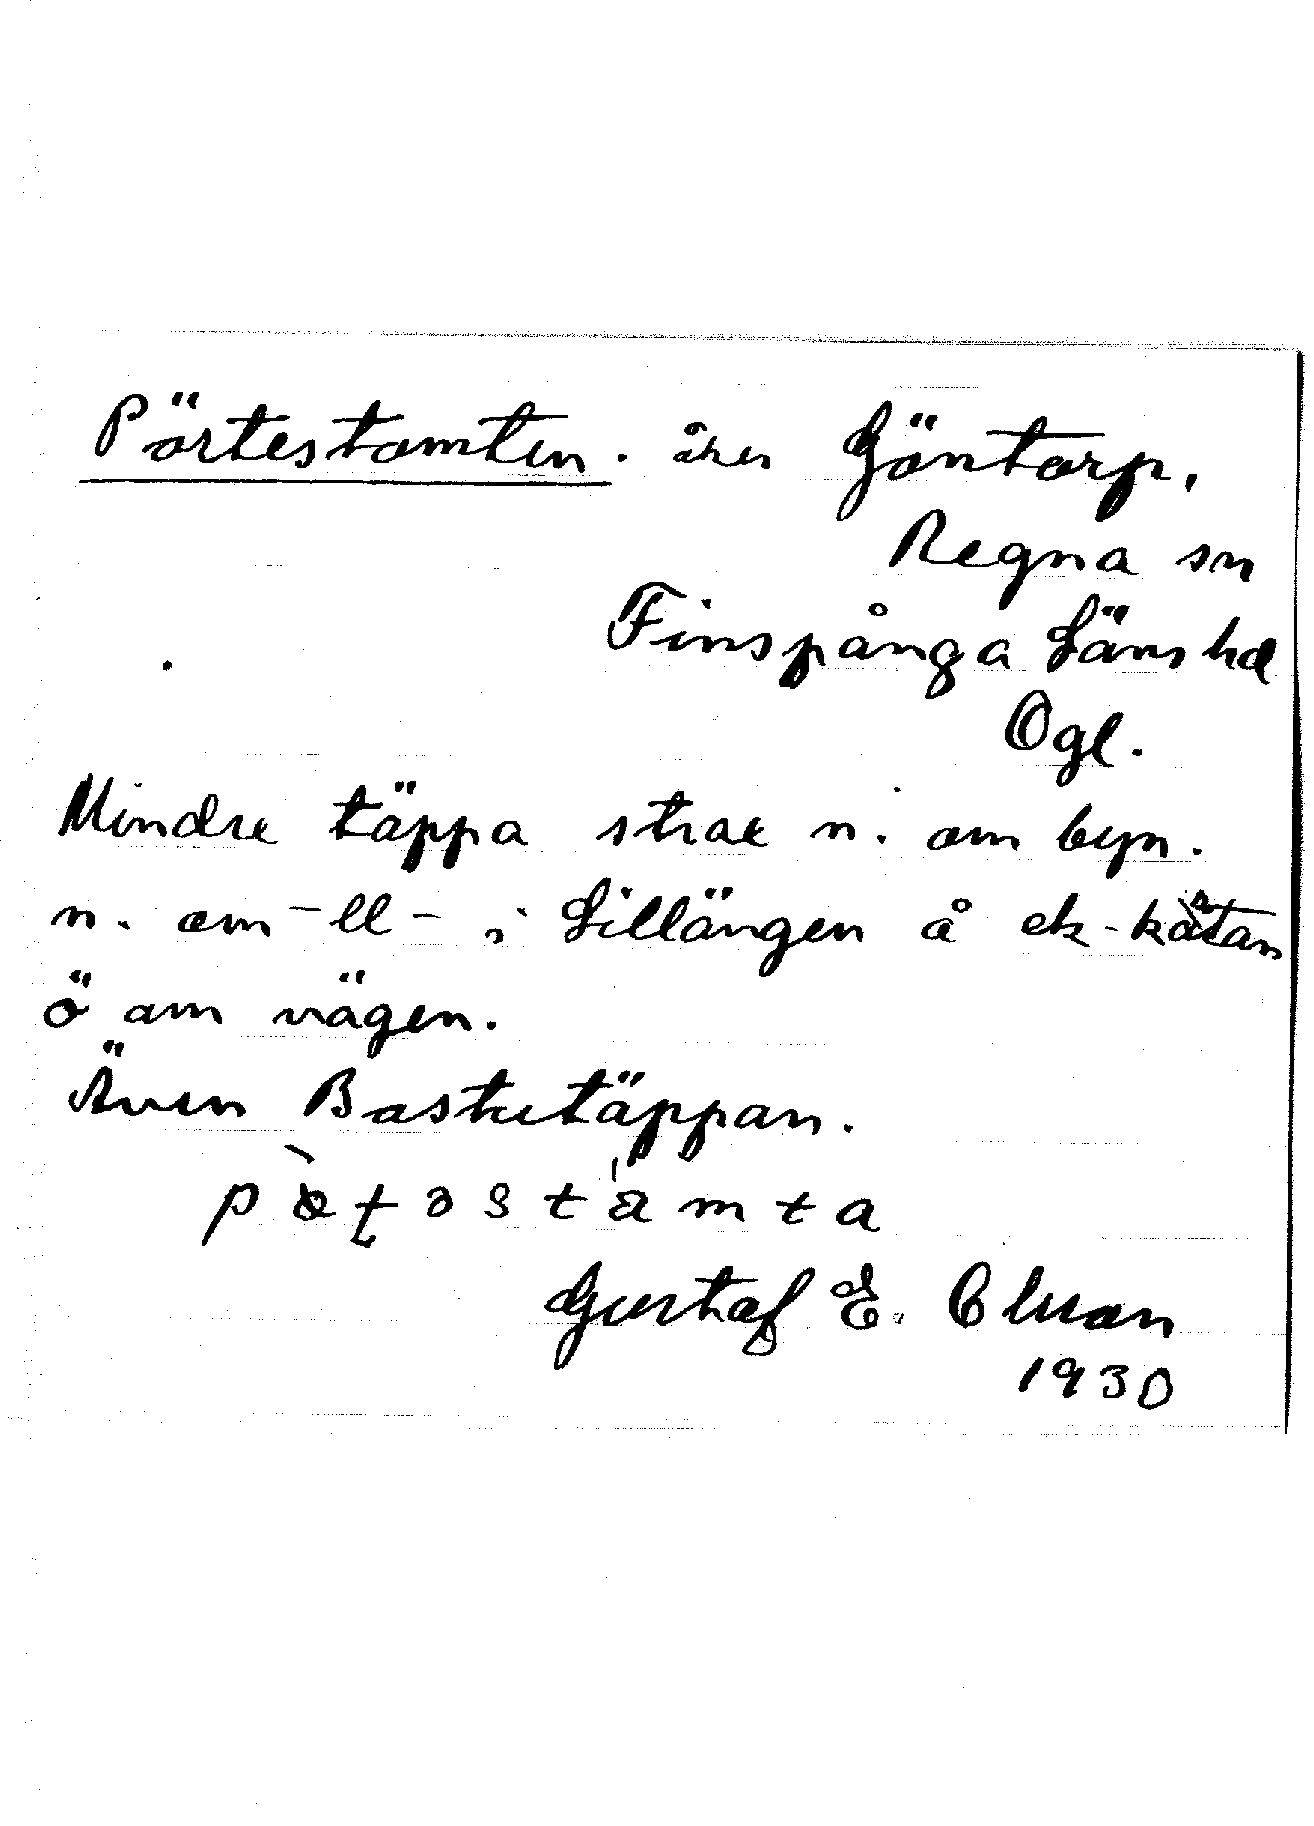 Pörtestomten. åker Göntorp,
Regna sn
Finspånga Läns hd
Ögl.
Mindre täppa strax n. om byn.
n. om -ll- i Lillängen å ek-kåtan
ö om vägen.
Även Bastutäppan.
Gustaf E. Clman
1930